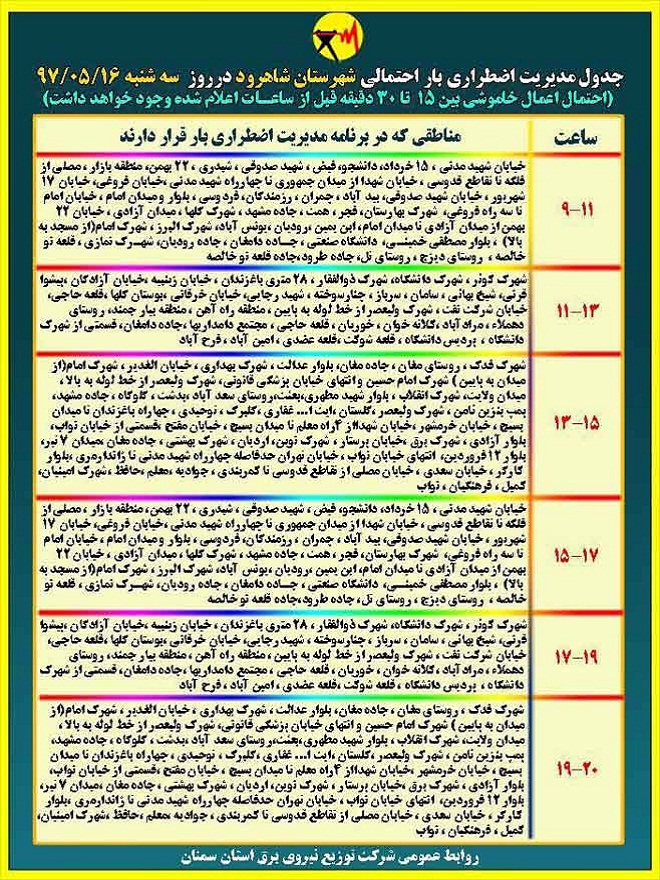 جدول مدیریت اضطراری بار احتمالی شهرستان شاهرود در روز سه شنبه ۹۷/۰۵/۱۶
(احتمال اعمال خاموشی بین ۱۵ تا ۳۰ دقیقه قبل از ساعات اعلام شده وجود خواهد داشت)
ساعت
مناطقی که در برنامه مدیریت اضطراری بار قرار دارند
۹-۱۱
خیابان شهید مدنی ، ۱۵ خرداد، دانشجو، فیض ، شهید صدوقی ، شیدری ، ۲۲ بهمن، منطقه بازار ، مصلی از
فلکه تا تقاطع فردوسی ، خیابان شهدا از میدان جمهوری تا چهارراه شهید مدنی ،خیابان فروغی، خیابان ۱۷
شهریور ، خیابان شهید صدوقی، بید آباد ، چمران ، رزمندگان، فردوسی ، بلوار و میدان امام ، خیابان امام
تا سه راه فروغی، شهرک بهارستان، فجر ، همت ، جاده مشهد ، شهرک گلها ، میدان آزادی ، خیابان ۲۲
بهمن از میدان آزادی تا میدان امام، ابن یمین ،رودیان ،یونس آباد، شهرک البرز ، شهرک امام(از مسجد به
بالا) ، بلوار مصطفی خمینی، دانشگاه صنعتی ، جاده دامغان ، جاده رودیان، شهرک نمازی ، قلعه نو
خالصه ، روستای دیزج ، روستای تل، جاده طرود،جاده قلعه نو خالصه
۱۱-۱۳
شهرک کوثر ، شهرک دانشگاه، شهرک ذوالفقار ، ۲۸ متری باغزندان ، خیابان زینبیه ،خیابان آزادگان ،پیشوا
قرنی، شیخ بهائی ، سامان ، سرباز ، چنارسوخته ، شهید رجایی، خیابان خرقانی ،بوستان گلها ،قلعه حاجی،
خیابان شرکت نفت ، شهرک ولیعصر از خط لوله به پایین ، منطقه راه آهن ، منطقه بیار جمند، روستای
دهملا، مراد آباد ،کلاته خوان ، خوریان ، قلعه حاجی ، مجتمع دامداریها ،جاده دامغان، قسمتی از شهرک
دانشگاه ، پردیس دانشگاه ، قلعه شوکت ،قلعه عضدی ، امین آباد ، فرح آباد
۱۳-۱۵
شهرک فدک ، روستای مغان ، جاده مغان، بلوار عدالت ، شهرک بهداری ، خیابان الغدیر ، شهرک امام(از
میدان به پایین ) شهرک امام حسین و انتهای خیابان پزشکی قانونی، شهرک ولیعصر از خط لوله به بالا ،
میدان ولایت، شهرک انقلاب ، بلوار شهید مطهری،بعثت،روستای سعد آباد ،بدشت ، کلوکاه ، جاده مشهد،
پمپ بنزین تامن ، شهرک ولیعصر ،گلستان ،ایت ا... غفاری ،گلبرگ ، توحیدی ، چهاراه باغزندان تا میدان
بسیج ، خیابان خرمشهر ،خیابان شهدا از ۴راه معلم تا میدان بسیج ، خیابان مفتح ،قسمتی از خیابان نواب،
بلوار آزادی ، شهرک برق ،خیابان پرستار ، شهرک نوین، اردیان ، شهرک بهشتی ، جاده مغان ،میدان ۷ تیر،
بلوار ۱۲ فروردین، انتهای خیابان نواب ، خیابان تهران حدفاصله چهارراه شهید مدنی تا ژاندارمری ،بلوار
کارگر ، خیابان سعدی ، خیابان مصلی از تقاطع فردوسی تا کمربندی ، جوادیه ،معلم ،حافظ ،شهرک امینیان،
کمیل ، فرهنگیان ، نواب
۱۵-۱۷
خیابان شهید مدنی ، ۱۵ خرداد، دانشجو، فیض ، شهید صدوقی ، شیدری ، ۲۲ بهمن، منطقه بازار ، مصلی از
فلکه تا تقاطع فردوسی ، خیابان شهدا از میدان جمهوری تا چهارراه شهید مدنی ،خیابان فروغی، خیابان ۱۷
شهریور ، خیابان شهید صدوقی، بید آباد ، چمران ، رزمندگان، فردوسی ، بلوار و میدان امام ، خیابان امام
تا سه راه فروغی، شهرک بهارستان، فجر ، همت ، جاده مشهد ، شهرک گلها ، میدان آزادی ، خیابان ۲۲
بهمن از میدان آزادی تا میدان امام، ابن یمین ،رودیان ،یونس آباد، شهرک البرز ، شهرک امام(از مسجد به
بالا) ، بلوار مصطفی خمینی، دانشگاه صنعتی ، جاده دامغان ، جاده رودیان، شهرک نمازی ، قلعه نو
خالصه ، روستای دیزج ، روستای تل، جاده طرود،جاده قلعه نو خالصه
۱۷-۱۹
شهرک کوثر ، شهرک دانشگاه، شهرک ذوالفقار ، ۲۸ متری باغزندان ، خیابان زینبیه ،خیابان آزادگان ،پیشوا
قرنی، شیخ بهائی ، سامان ، سرباز ، چنارسوخته ، شهید رجایی، خیابان خرقانی ،بوستان گلها ،قلعه حاجی،
خیابان شرکت نفت ، شهرک ولیعصر از خط لوله به پایین ، منطقه راه آهن ، منطقه بیار جمند، روستای
دهملا، مراد آباد ،کلاته خوان ، خوریان ، قلعه حاجی ، مجتمع دامداریها ،جاده دامغان، قسمتی از شهرک
دانشگاه ، پردیس دانشگاه ، قلعه شوکت ،قلعه عضدی ، امین آباد ، فرح آباد
۱۹-۲۰
شهرک فدک ، روستای مغان ، جاده مغان، بلوار عدالت ، شهرک بهداری ، خیابان الغدیر ، شهرک امام(از
میدان به پایین ) شهرک امام حسین و انتهای خیابان پزشکی قانونی، شهرک ولیعصر از خط لوله به بالا ،
میدان ولایت، شهرک انقلاب ، بلوار شهید مطهری،بعثت،روستای سعد آباد ،بدشت ، کلوکاه ، جاده مشهد،
پمپ بنزین تامن ، شهرک ولیعصر ،گلستان ،ایت ا... غفاری ،گلبرگ ، توحیدی ، چهاراه باغزندان تا میدان
بسیج ، خیابان خرمشهر ،خیابان شهدا از ۴راه معلم تا میدان بسیج ، خیابان مفتح ،قسمتی از خیابان نواب،
بلوار آزادی ، شهرک برق ،خیابان پرستار ، شهرک نوین، اردیان ، شهرک بهشتی ، جاده مغان ،میدان ۷ تیر،
بلوار ۱۲ فروردین، انتهای خیابان نواب ، خیابان تهران حدفاصله چهارراه شهید مدنی تا ژاندارمری ،بلوار
کارگر ، خیابان سعدی ، خیابان مصلی از تقاطع فردوسی تا کمربندی ، جوادیه ،معلم ،حافظ ،شهرک امینیان،
کمیل ، فرهنگیان ، نواب
روابط عمومی شرکت توزیع نیروی برق استان سمنان